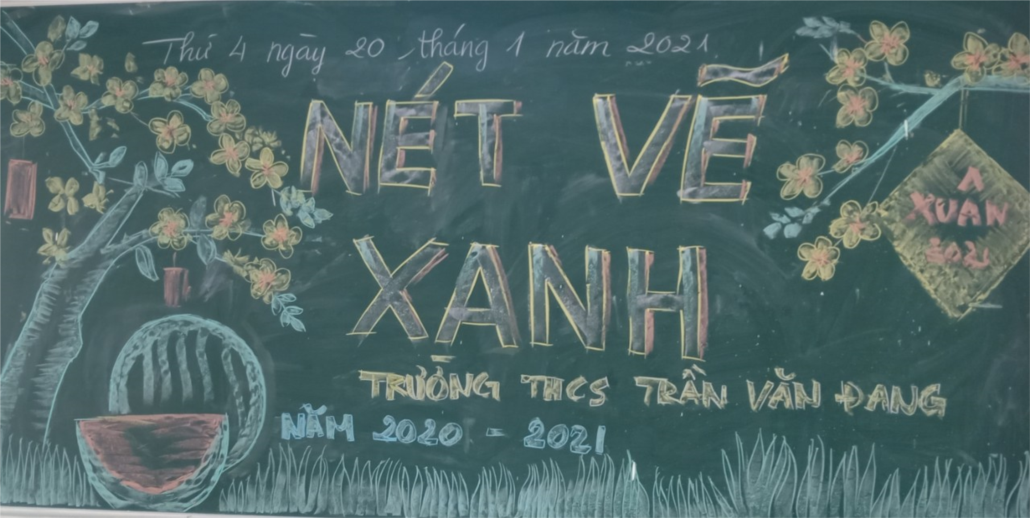 Thứ 4 ngày 20 tháng 1 năm 2021
NÉT VẼ
XANH
TRƯỜNG THCS TRẦN VĂN ĐANG
NĂM 2020 - 2021
XUÂN
2021